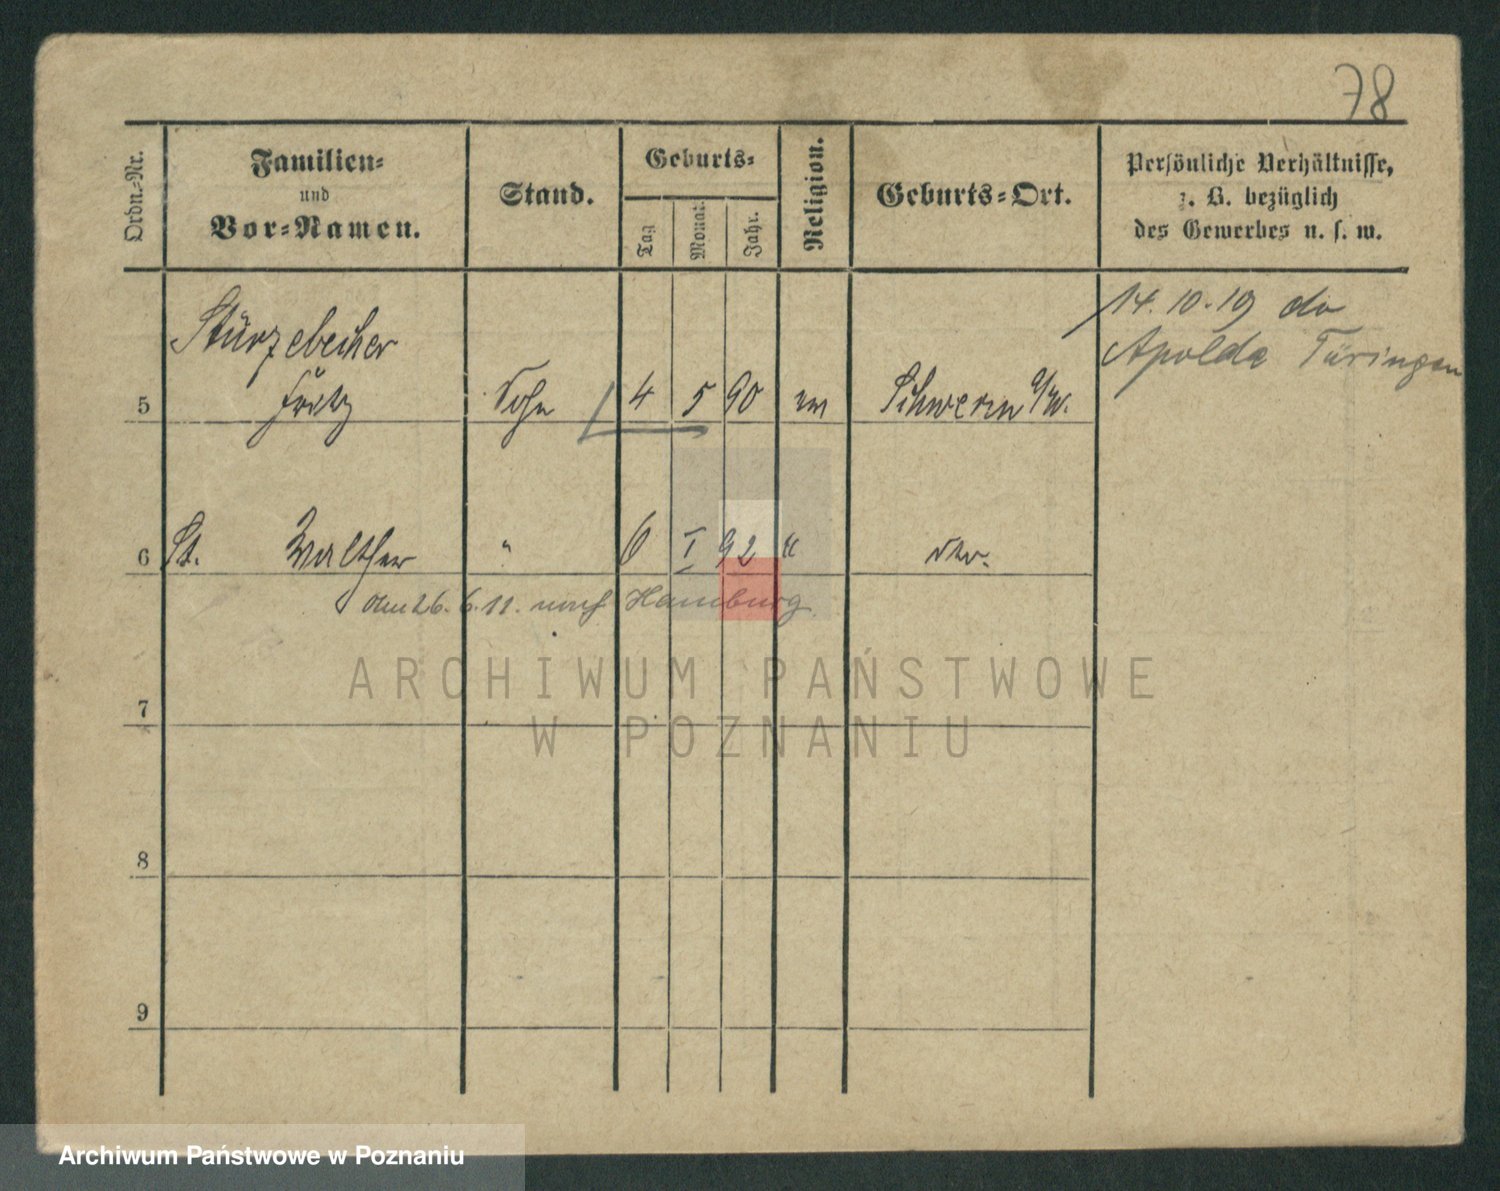 78
Ordn.-Nr.
Familien-
und
Vor-Namen.
Stand.
Geburts-
Tag
Monat.
Jahr.
Religion.
Geburts-Ort.
Persönliche Verhältnisse,
z. B. bezüglich
des Gewerbes u. s. w.
14. 10. 19
Apolda Türingen
Stürzebecher
5 Fritz Sohn 4 5 90 ev Schwerin a/W.
6 St. Walther " 6 I 92 " dto.
am 26. 6. 11. nach Hamburg
7
8
9
ARCHIWUM PAŃSTWOWE
W POZNANIU
Archiwum Państwowe w Poznaniu